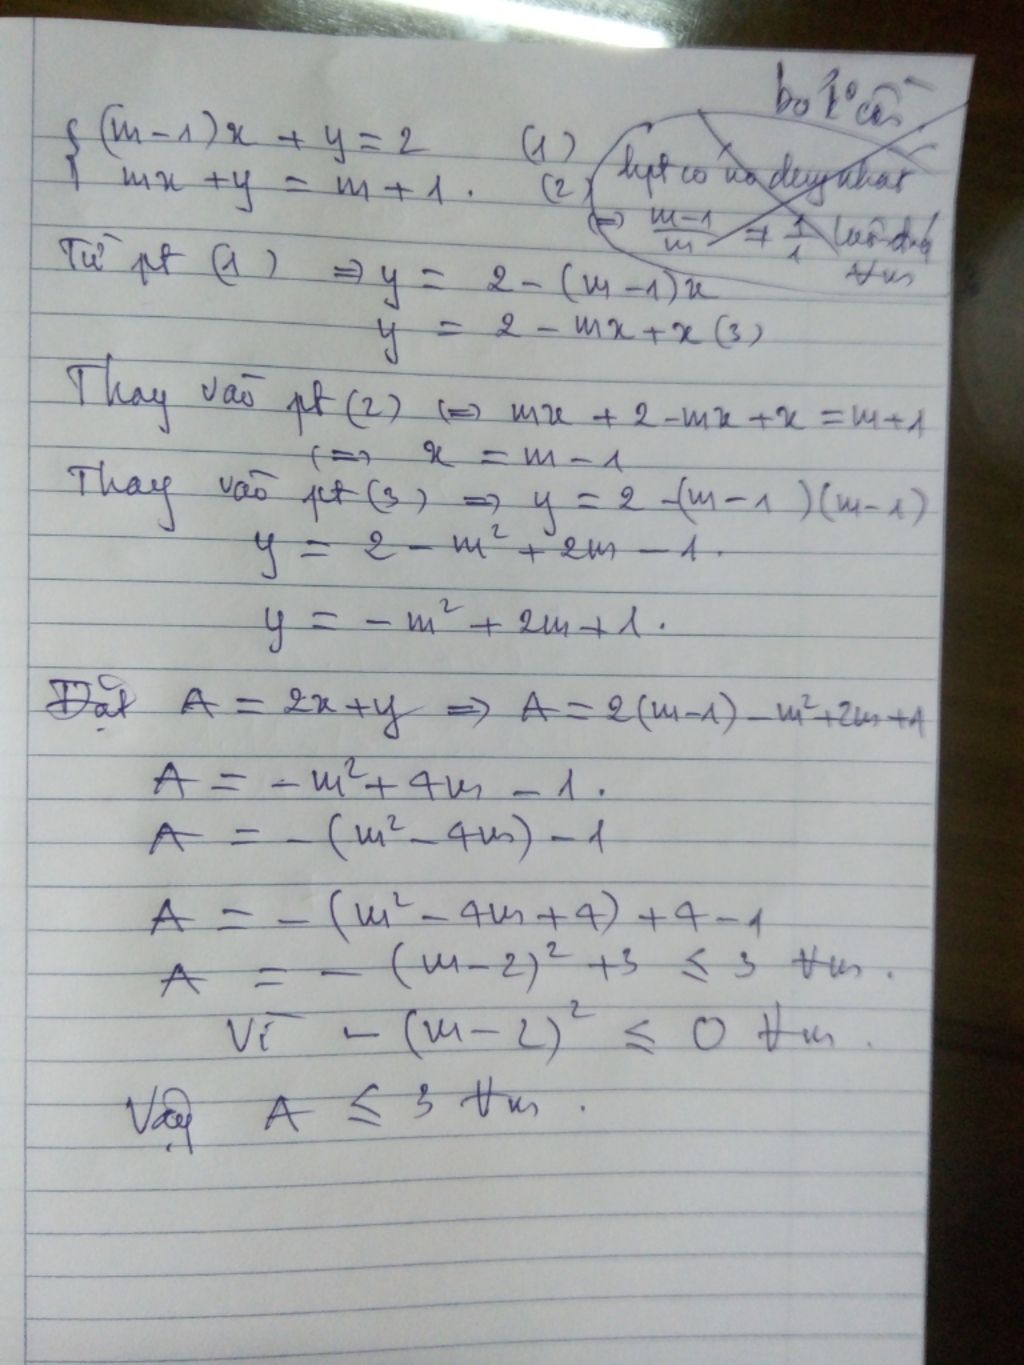 bỏ k° cần
{ (m-1)x + y = 2 (1)
mx + y = m + 1. (2)
hpt có no duy nhất
⇔ (m-1)/m ≠ 1/1 (luôn đúng ∀m
Từ pt (1) ⇒ y = 2 - (m-1)x
y = 2 - mx + x (3)
Thay vào pt (2) ⇔ mx + 2 - mx + x = m + 1
⇔ x = m - 1
Thay vào pt (3) ⇒ y = 2 - (m-1)(m-1)
y = 2 - m² + 2m - 1.
y = - m² + 2m + 1.
Đặt A = 2x + y ⇒ A = 2(m-1) - m² + 2m + 1
A = - m² + 4m - 1.
A = - (m² - 4m) - 1
A = - (m² - 4m + 4) + 4 - 1
A = - (m-2)² + 3 ≤ 3 ∀m.
Vì - (m-2)² ≤ 0 ∀m.
Vậy A ≤ 3 ∀m.